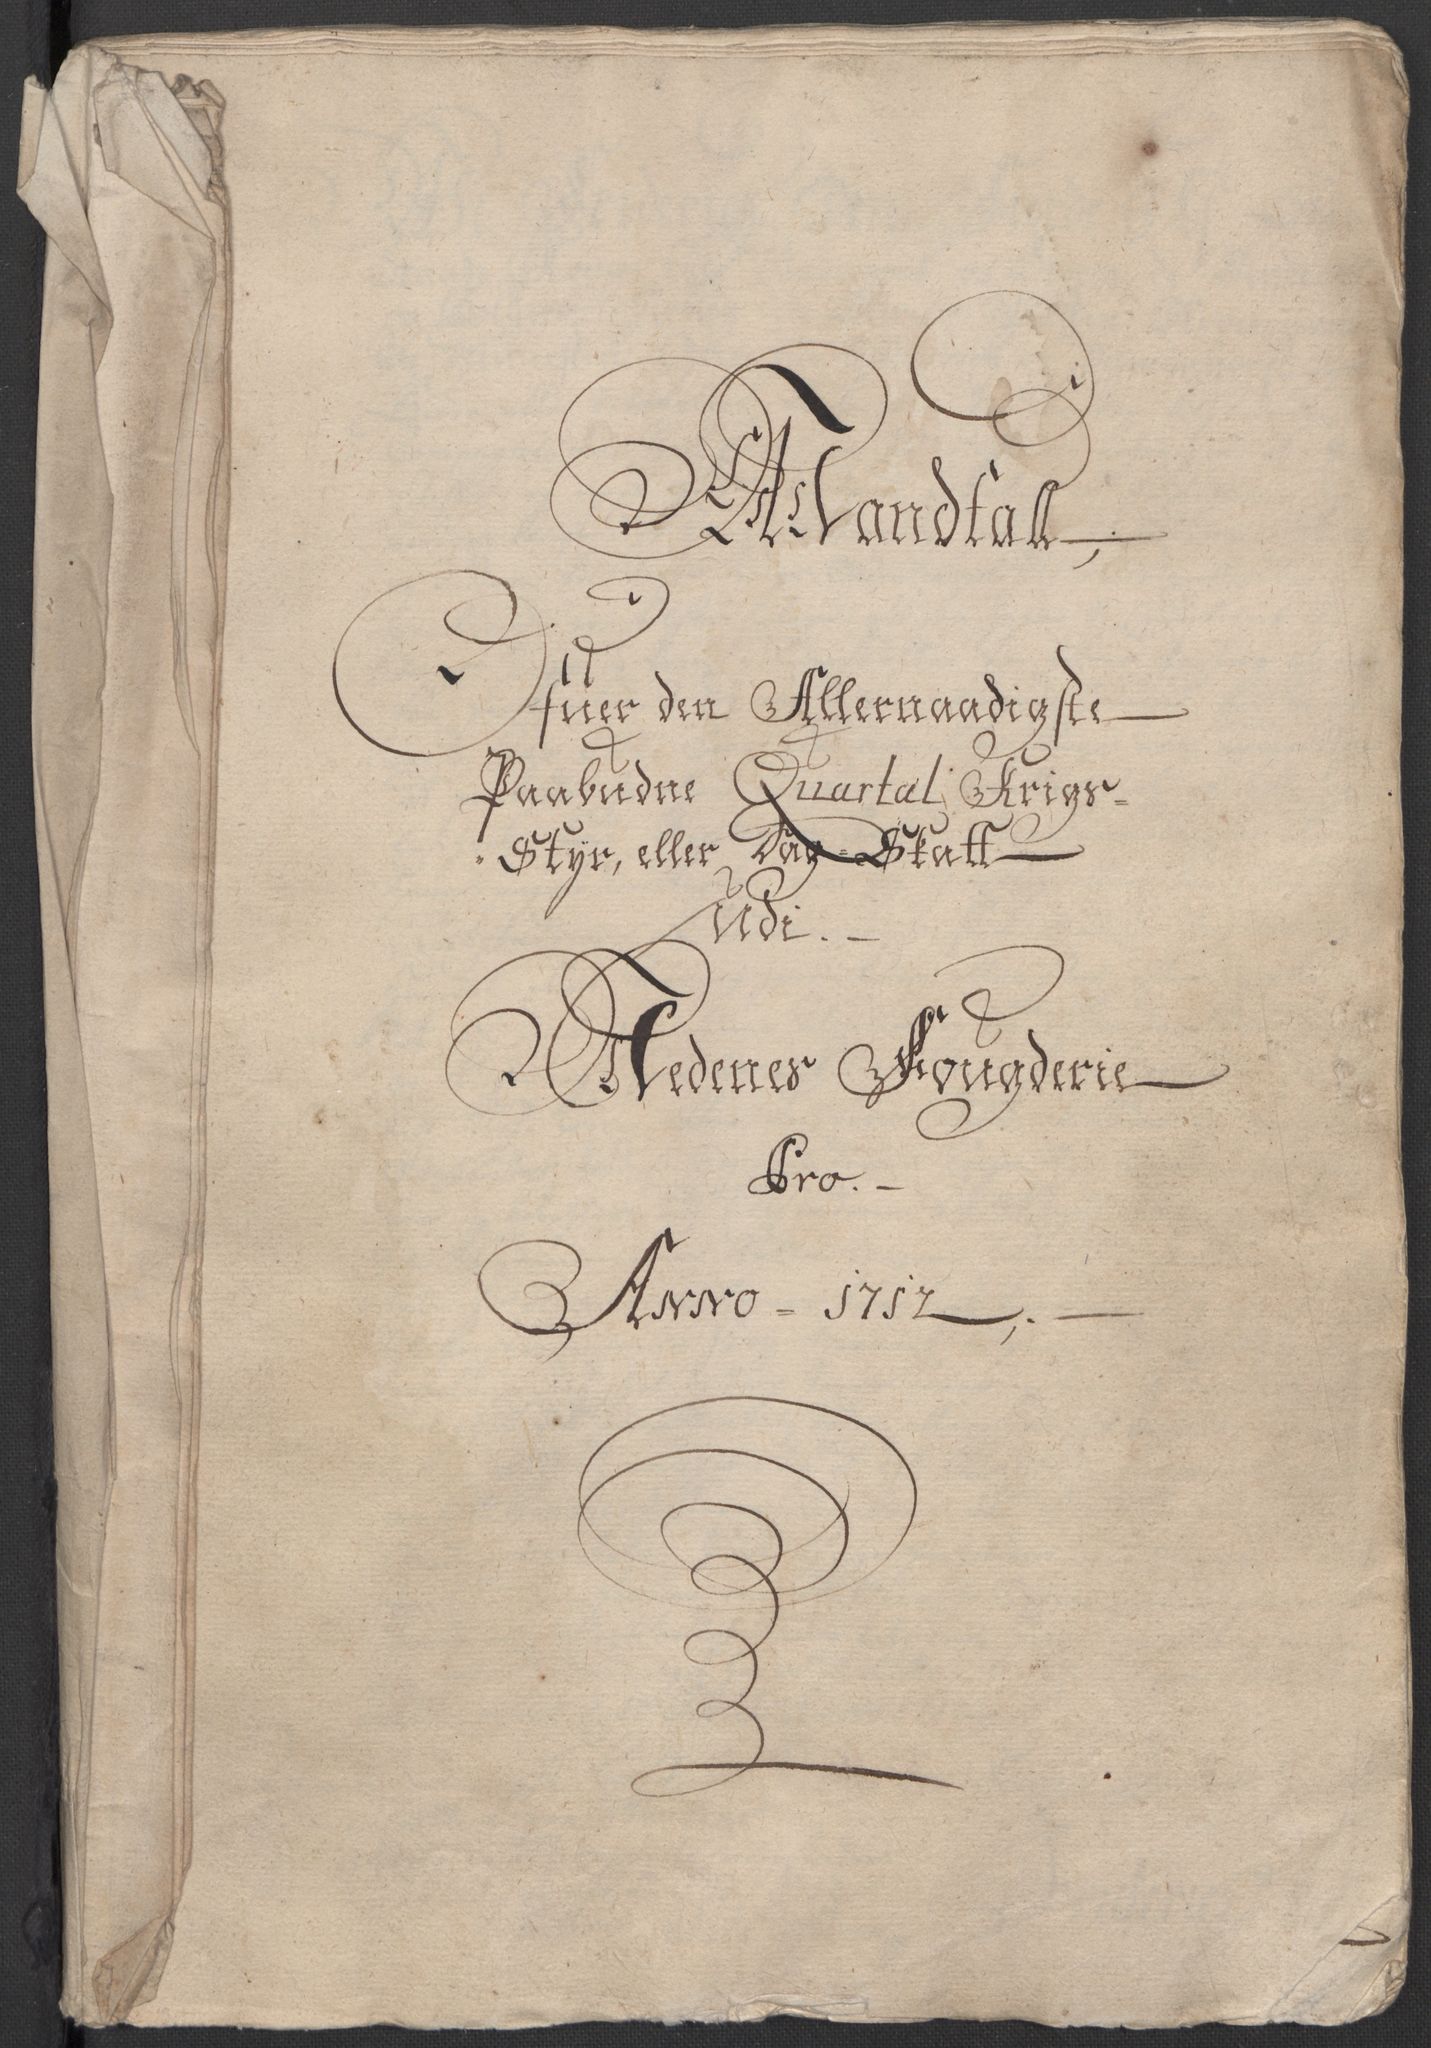 Mandtall,
Ofuer den Allernaadigste
Paabudne Quartal Krigs-
Styr, eller Dag-Skatt
udi.
Nedenes Fougderie
Pro.
Anno - 1712,.